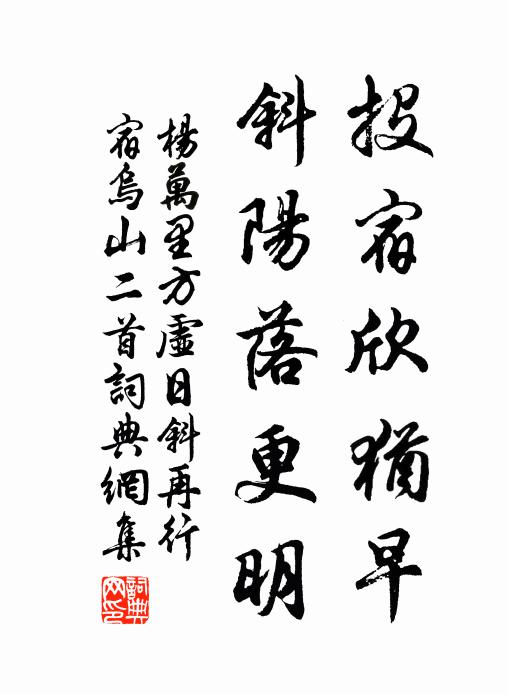 投宿欣猶早
斜陽落更明
楊萬里方虛日斜再行
宿烏山二首詞典網集
詞典
网印